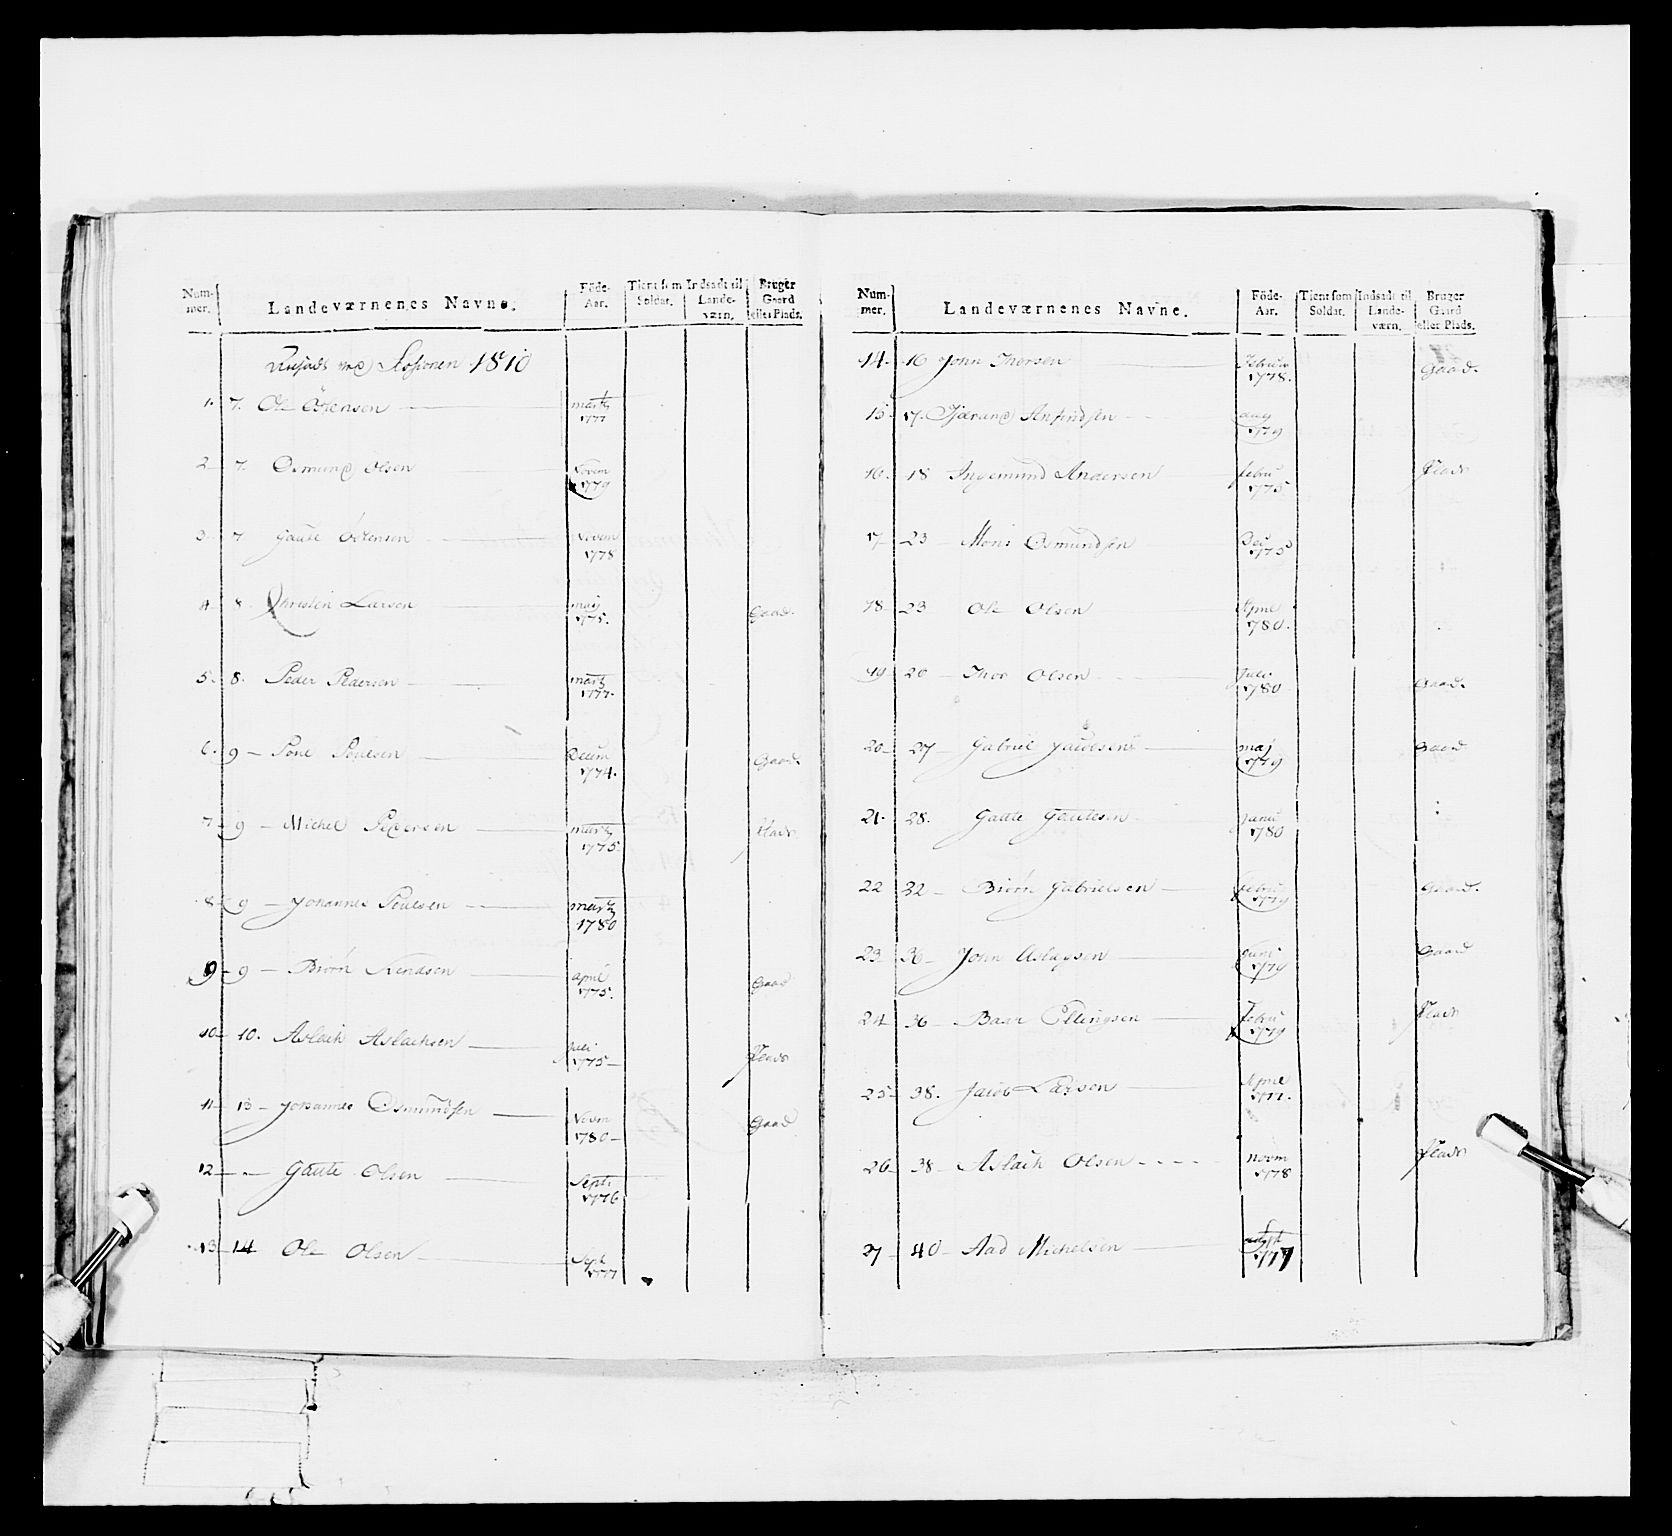 Num-
mer.
Landeværnenes Navne.
Föde-
Aar.
Tient som
Soldat.
Indsadt til
Lande-
værn.
Bruger
Gaard
eller Plads.
Sessionen 1810
1. 7. Ole martz
1777
2 7. Osmund Olsen Novem
1779
3. 7 Gaute Novem
1778
4. 8. Christen Larsen maij
1775. Gaard.
5. 8. Peder Pedersen martz
1777.
6. 9 Decem
1774. Gaard.
7 9 Michel Pedersen martz
1775. Plads
8 9 Johannes martz
1780
9 9 Biørn April
1775. Gaard
10 10. Aslach Aslachsen Juli
1775 Plads
11 13 Johannes Osmundsen Novm
1780 Gaard
12 Gaute Olsen Septr
1776
13 14 Ole Olsen Sept
1777
Num-
mer.
Landeværnenes Navne.
Föde-
Aar.
Tient som
Soldat.
Indsadt til
Lande-
værn.
Bruger
Gaard
eller Plads.
14. 16 John Februar
1778. Gaard.
15 17. aug
1779
16. 18 Ingemund Andersen Febru
1775 Plads
17 23 Mons Osmundsen
1775
18 23 Ole Olsen April
1780.
19 20 Thor Olsen Juli
1780 Gaard.
20 27 Gabriel maj
1779 Gaard
21. 28. Gaute Gautesen Janu
1780
22 32 Biørn Gabrielsen Febru
1779 Gaard.
23 36 John Aslagsen Juni
1779 Gaard
24 36 Baar Ellingsen Febru
1779 Plads
25 38. Jacob Larsen April
1777.
26 38 Aslach Olsen Novm
1778 Plads
27 40 Aad Michelsen
1777